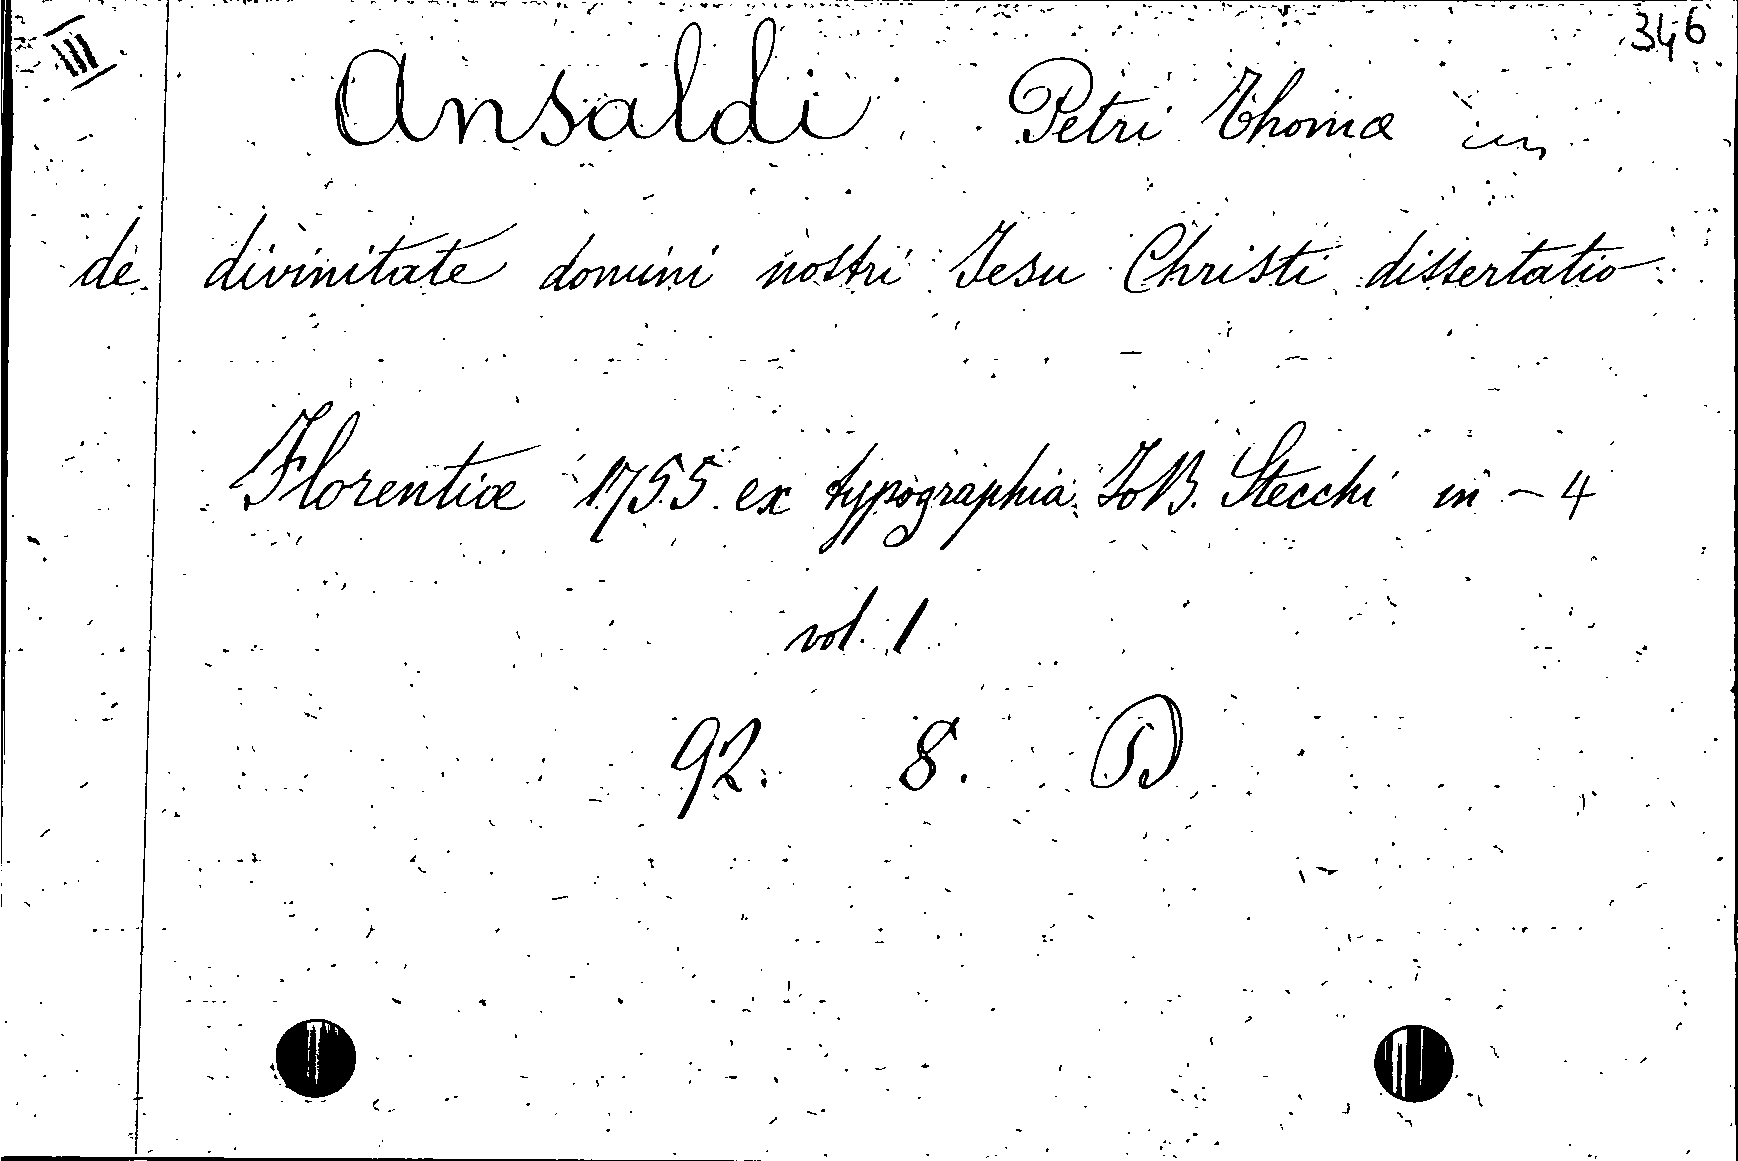 III
346
Ansaldi Petri Thomæ
de divinitate domini nostri Jesu Christi dissertatio
Florentiæ 1755 ex typographia Jo B. Stecchi in-4
vol. 1
92. 8.